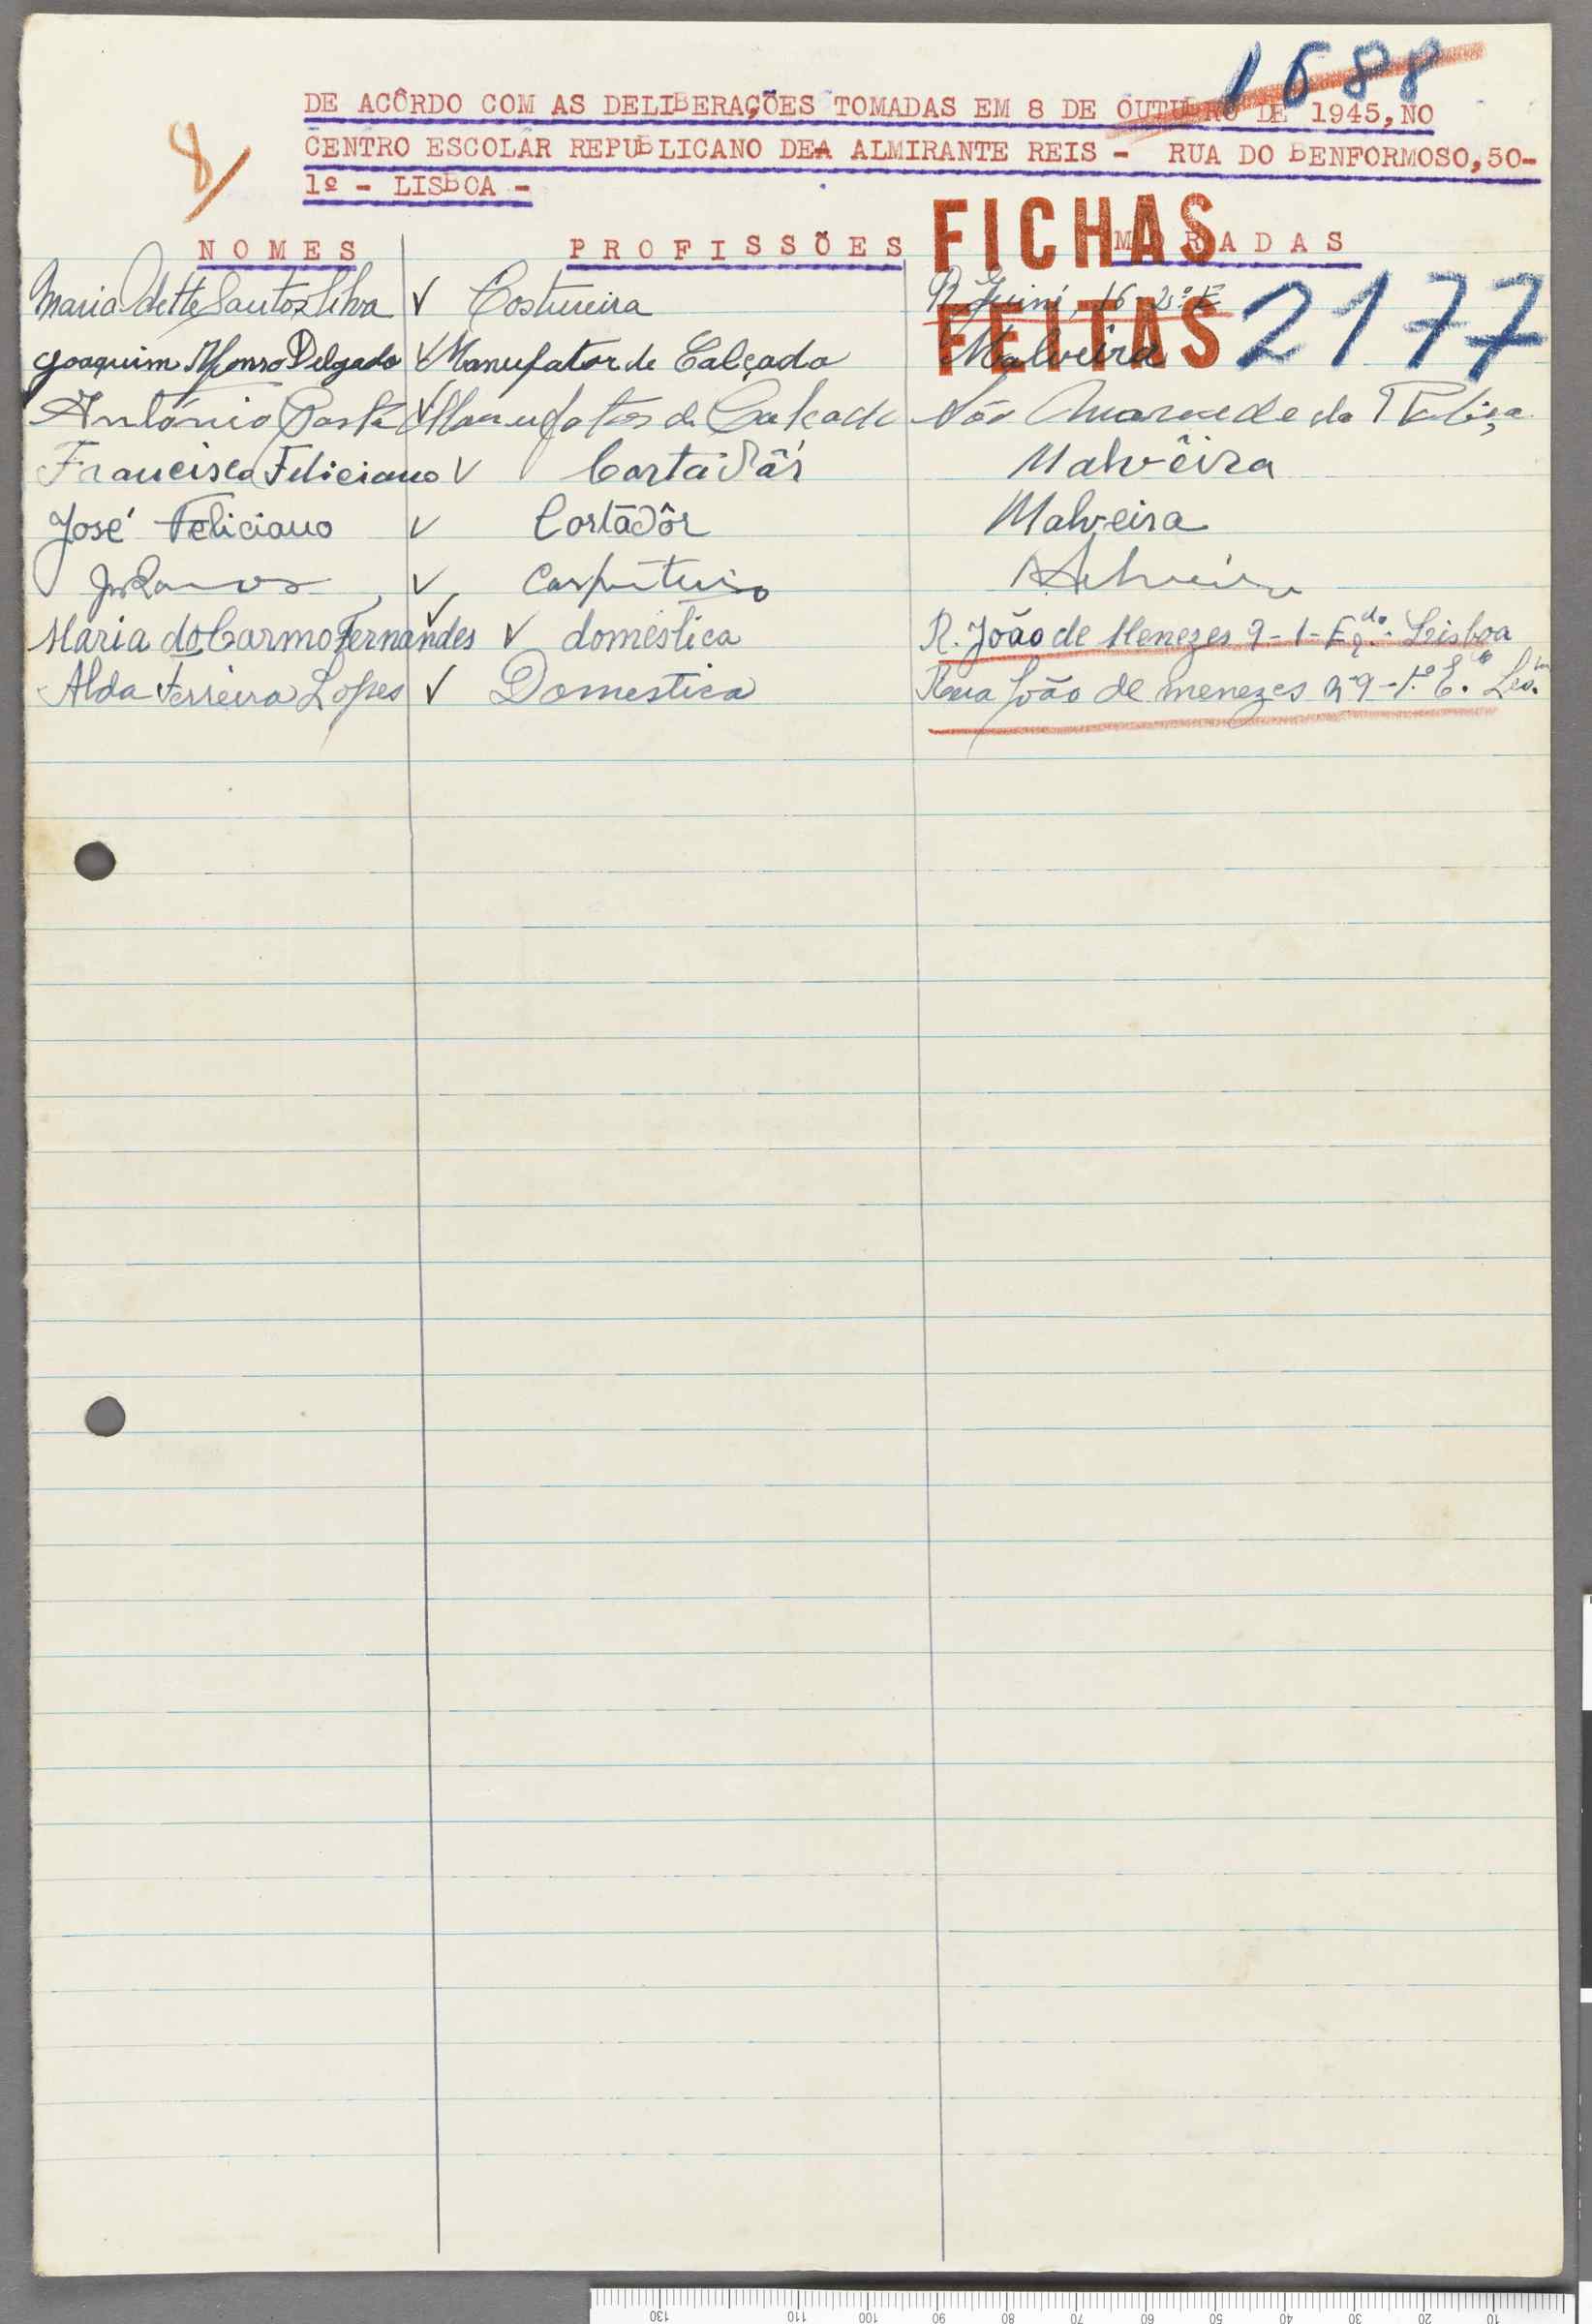 1688
DE ACÔRDO COM AS DELIBERAÇÕES TOMADAS EM 8 DE OUTUBRO DE 1945, NO
CENTRO ESCOLAR REPUBLICANO DEA ALMIRANTE REIS - RUA DO BENFORMOSO, 50-
1º - LISBOA -
8/
FICHAS
NOMES PROFISSÕES MORADAS
Maria Odette Santos Silva V Costureira R. Guiné, 16-2º-E
FEITAS 2177
Joaquim Afonso Delgado V Manufator de Calçado Malveira
António V Manufator de Calçado São
Francisco Feliciano V Cortadôr Malvêira
José Feliciano V Cortadôr Malveira
Ramos V Carpinteiro Malveira
Maria do Carmo Fernandes V domestica R. João de Menezes 9-1-Eqdo. - Lisboa
Alda Ferreira Lopes V Domestica Rua João de menezes nº 9-1.º E.
130 110 100 90 80 70 60 50 40 30 20 10